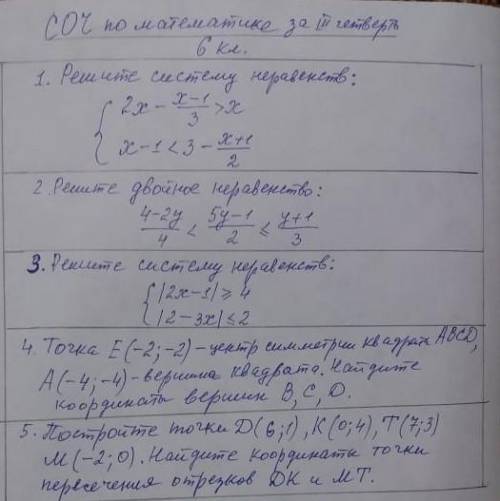 СОЧ по математике за III четверть
6 кл.
1. Решите систему неравенств:
{ 2x - (x-1)/3 > x
x - 1 < 3 - (x+1)/2
2. Решите двойное неравенство:
(4-2y)/4 < (5y-1)/2 ≤ (y+1)/3
3. Решите систему неравенств:
{ |2x-1| ≥ 4
|2-3x| ≤ 2
4. Точка E(-2;-2) - центр симметрии квадрата ABCD,
A(-4;-4) - вершина квадрата. Найдите
координаты вершин B, C, D.
5. Постройте точки D(6;1), K(0;4), T(7;3)
M(-2;0). Найдите координаты точки
пересечения отрезков DK и MT.